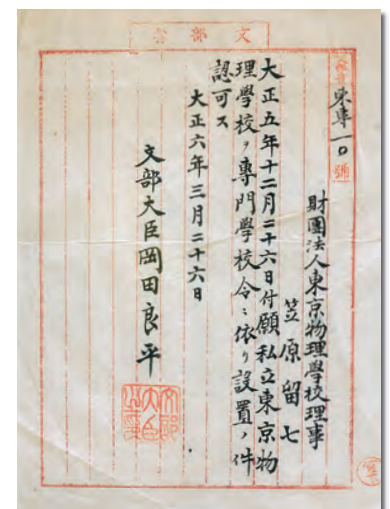 文部省
東專一〇號
財團法人東京物理學校理事
笠原留七
大正五年十二月二十六日付願私立東京物
理學校ヲ專門學校令ニ依リ設置ノ件
認可ス
大正六年三月二十六日
文部大臣岡田良平
文部大臣之印